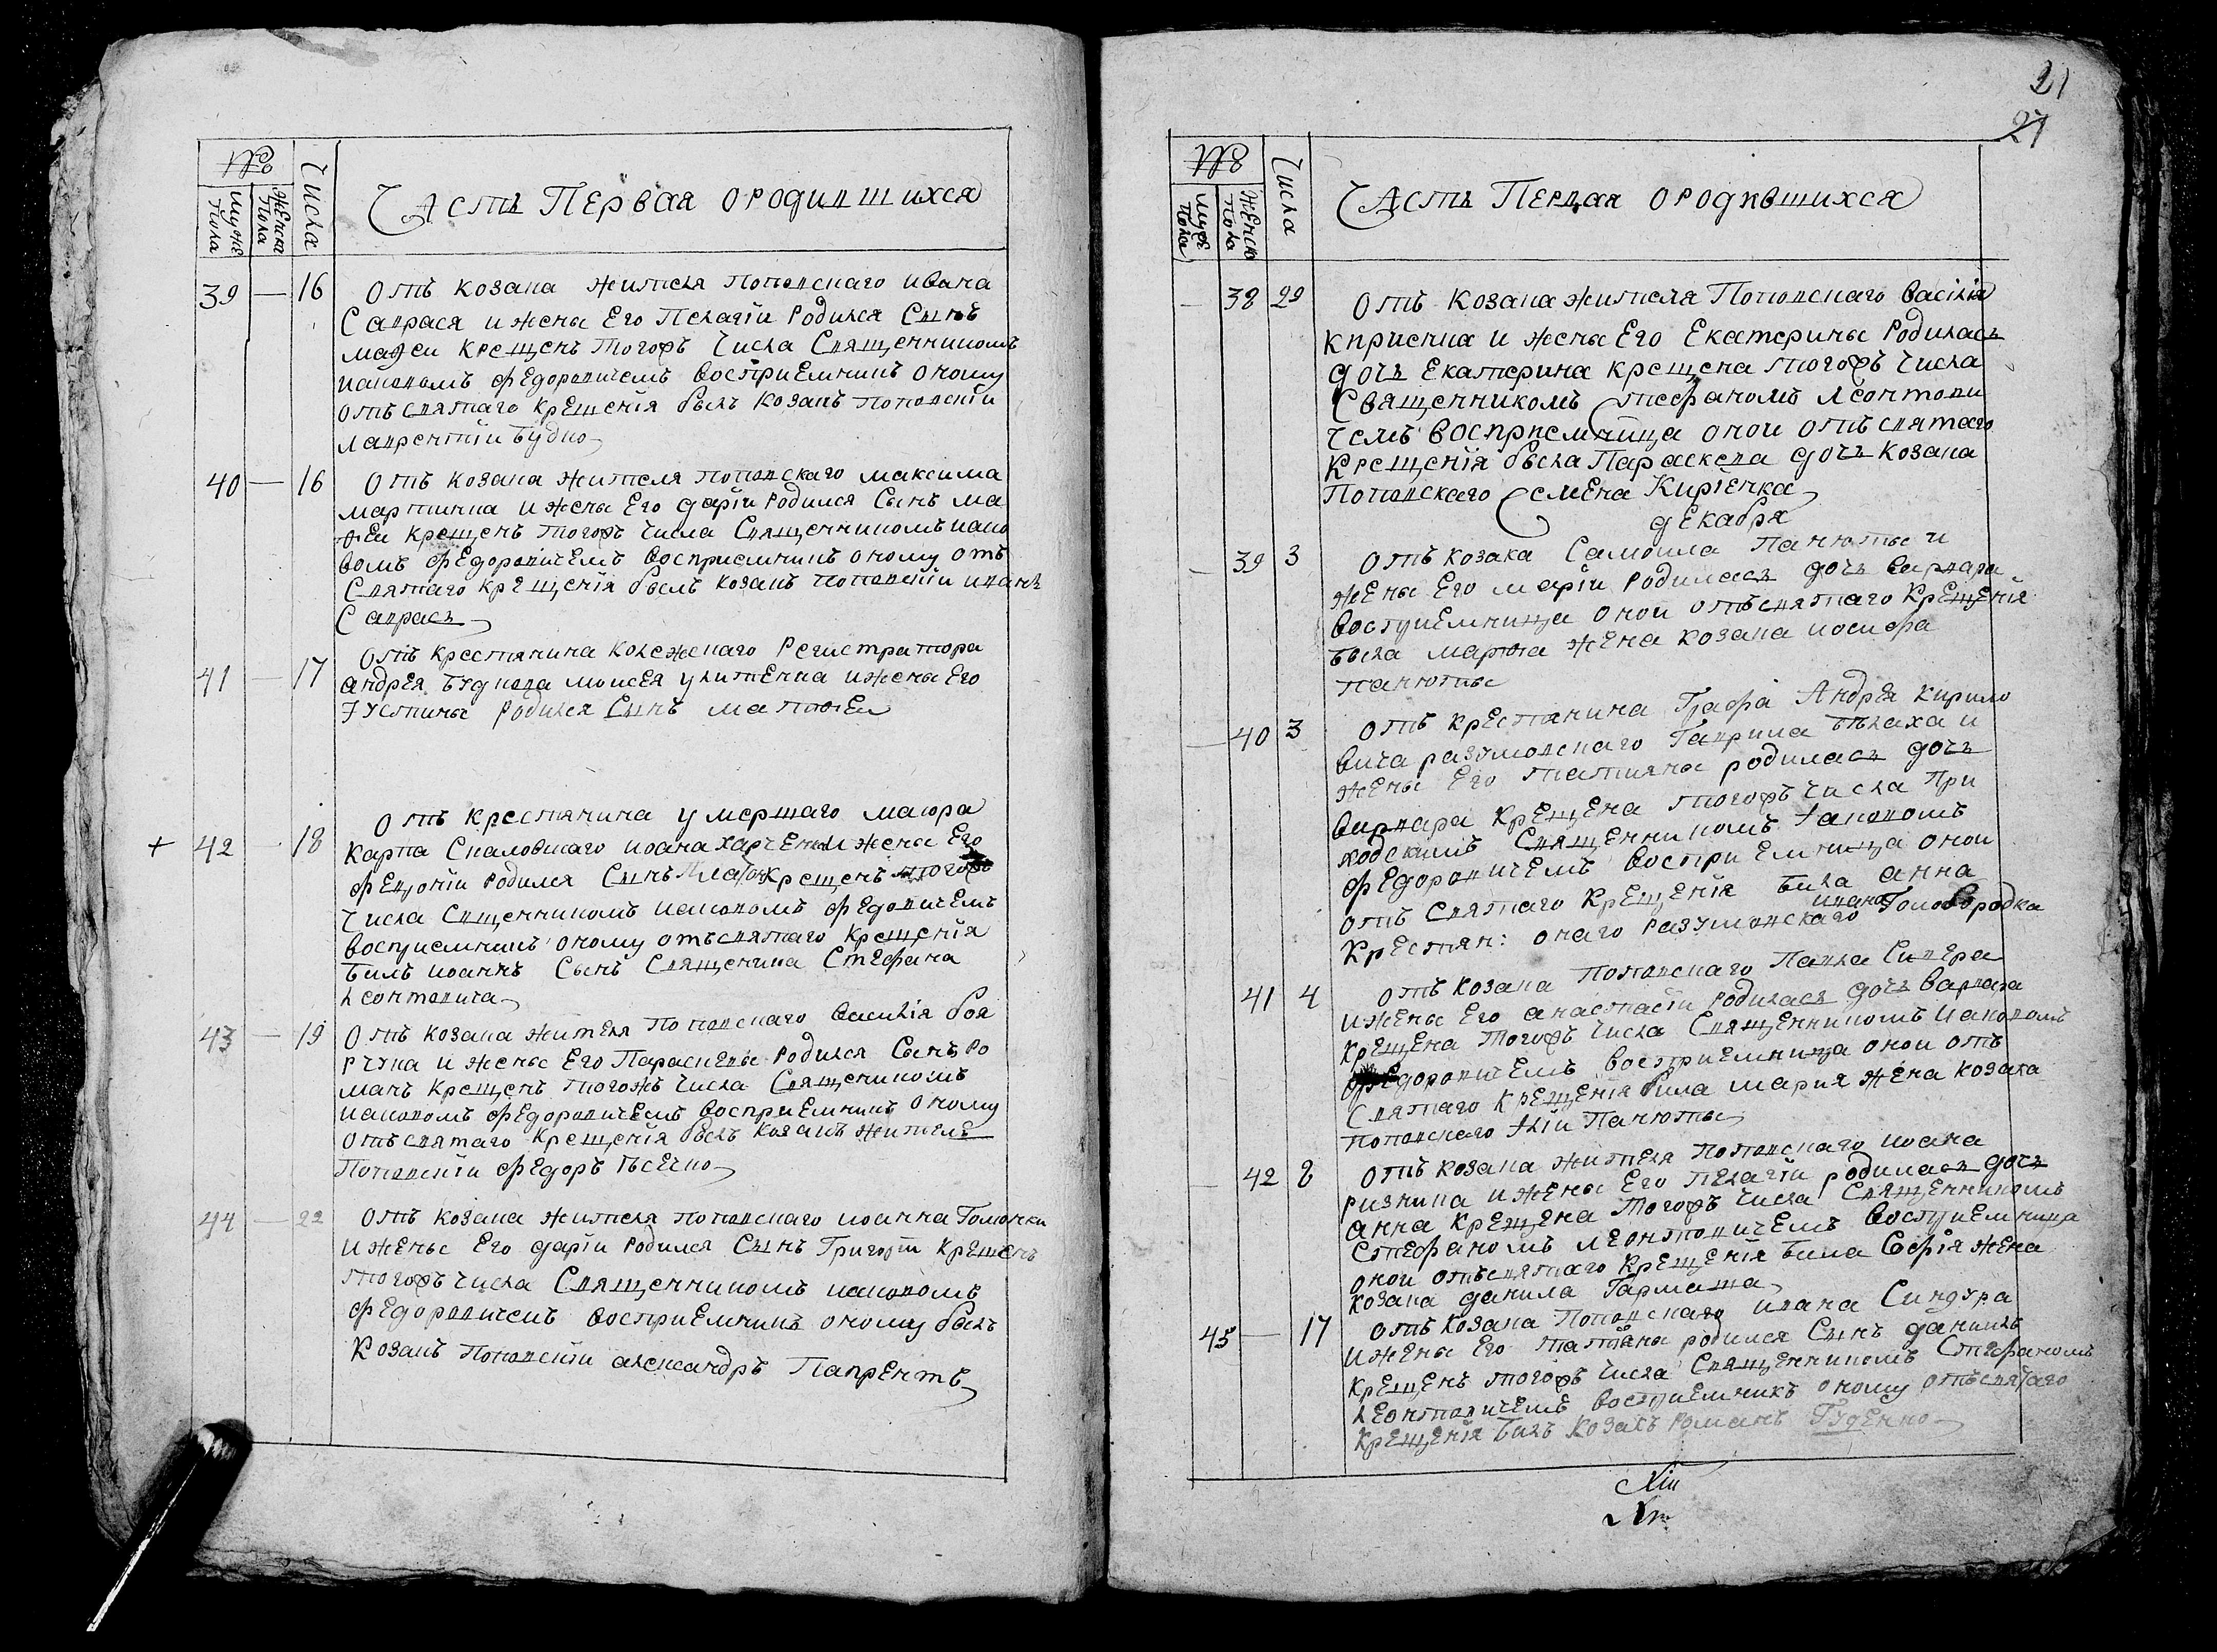 №
Мужеска Пола
Женска Пола
Числа
Часть Первая ородившихся
39 — 16 Отъ козака жителя поповскаго ивана
Саврася и жены Его Пелагіи Родился Сынъ
Матеи крещенъ тогожъ числа Священникомъ
иаковомъ федоровичемъ восприемникъ оному
отъ святаго крещенія былъ козакъ поповскіи
лаврентіи Будко
40 — 16 Отъ козака жителя поповскаго максима
мартинка и жены Его даріи Родился Сынъ ма
ѳеи крещенъ тогожъ числа Священникомъ иако
вомъ федоровичемъ восприемникъ оному отъ
Святаго крещенія былъ козакъ поповскіи иванъ
Саврась
41 — 17 Отъ крестянина колежскаго Регистратора
андрея Будкова моисея улитенка и жены Его
Іустины Родился Сынъ матвѣеи
+ 42 18 Отъ крестянина умершаго маиора
карпа Скаловскаго иоана харченка и жены Его
февроніи Родился Сынъ Платонъ крещенъ тогожъ
числа Сщенникомъ иаковомъ федовичемъ
восприемникъ оному отъ святаго крещенія
билъ иоаннъ Сынъ Священика Стефана
леонтовича
43 — 19 Отъ козака жителя поповскаго василія боя
рчука и жены Его Параскевы Родился Сынъ Ро
манъ крещенъ тогожъ числа Священикомъ
иаковомъ федоровичемъ восприемникъ оному
отъ святаго крещенія былъ козакъ житель
Поповскіи федоръ
44 — 22 Отъ козака жителя поповскаго иоанна Гомонки
и жены Его даріи Родился Сынъ Григоріи крещенъ
тогожъ числа Священникомъ иаковомъ
федоровичемъ восприемникъ оному былъ
козакъ поповскіи александръ Лавренть
21
27
№
Муже Пола
Женско Пола
Числа
Часть Первая ородившихся
— 38 29 Отъ козака жителя Поповскаго василія
киріенка и жены Его Екатерины Родилась
дочь Екатерина крещена тогожъ числа
Священникомъ Стефаномъ Леонтови
чемъ восприемница онои отъ святаго
крещенія была Параскева дочь козака
Поповскаго Семена Киріенка
декабря
— 39 3 Отъ козака Самоила Панюты и
жены Его маріи Родилась дочь варвара
восприемница онои отъ святаго крещенія
была марѳа жена козака иосифа
панюты
— 40 3 Отъ крестянина Графа Андрея кирило
вича разумовскаго Гаврила Бѣлаха и
жены Его татияны родилась дочь
варвара крещена тогожъ числа при
ходскимъ Священникомъ Іаковомъ
федоровичемъ восприемница онои
отъ Святаго крещенія била анна
крестян: онаго Разумовскаго ивана Голобородка
41 4 Отъ козака поповскаго Павла Сивера
и жены Его анастасіи Родилась дочь варвара
крещена тогожъ числа Священникомъ иаковомъ
федоровичемъ восприемница онои отъ
Святаго крещенія била мария жена козака
поповскаго Іліи Панюты
— 42 8 Отъ козака жителя поповскаго иоана
ризника и жены Его пелагіи родилась дочь
анна крещена тогожъ числа Священникомъ
Стефаномъ леонтовичемъ восприемница
онои отъ святаго крещенія била Софія жена
козака данила Гармаша
45 — 17 Отъ козака Поповскаго ивана Синдура
и жены Его татіаны родился Сынъ данииль
крещенъ тогожъ числа Священникомъ Стефаномъ
леонтовичемъ восприемникъ оному отъ святаго
крещенія билъ козакъ Романъ Гуденко